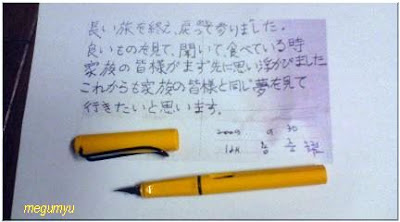 長い旅を終え、戻って参りました。
良いものを見て、聞いて、食べている時
家族の皆様がまず先に思い浮かびました
これからも家族の皆様と同じ夢を見て
行きたいと思います。
2009 9 30
megumyu